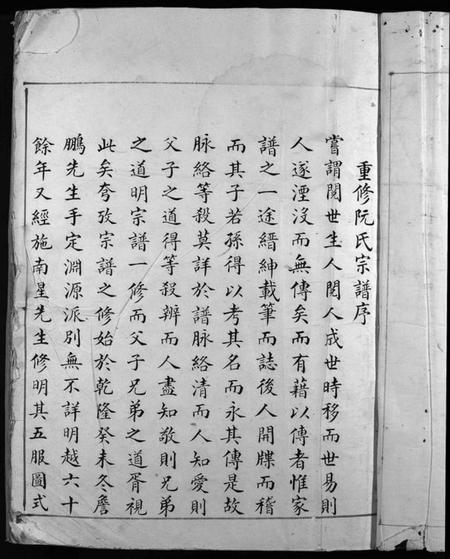 重修阮氏宗譜序
嘗謂閱世生人閱人成世時移而世易則
人遂湮沒而無傳矣而有藉以傳者惟家
譜之一途縉紳載筆而誌後人開牒而稽
而其子若孫得以考其名而永其傳是故
脉絡等殺莫詳於譜脉絡清而人知愛則
父子之道得等殺辨而人盡知敬則兄弟
之道明宗譜一修而父子兄弟之道胥視
此矣夸攷宗譜之修始於乾隆癸未冬詹
鵬先生手定淵源派別無不詳明越六十
餘年又經施南星先生修明其五服圖式